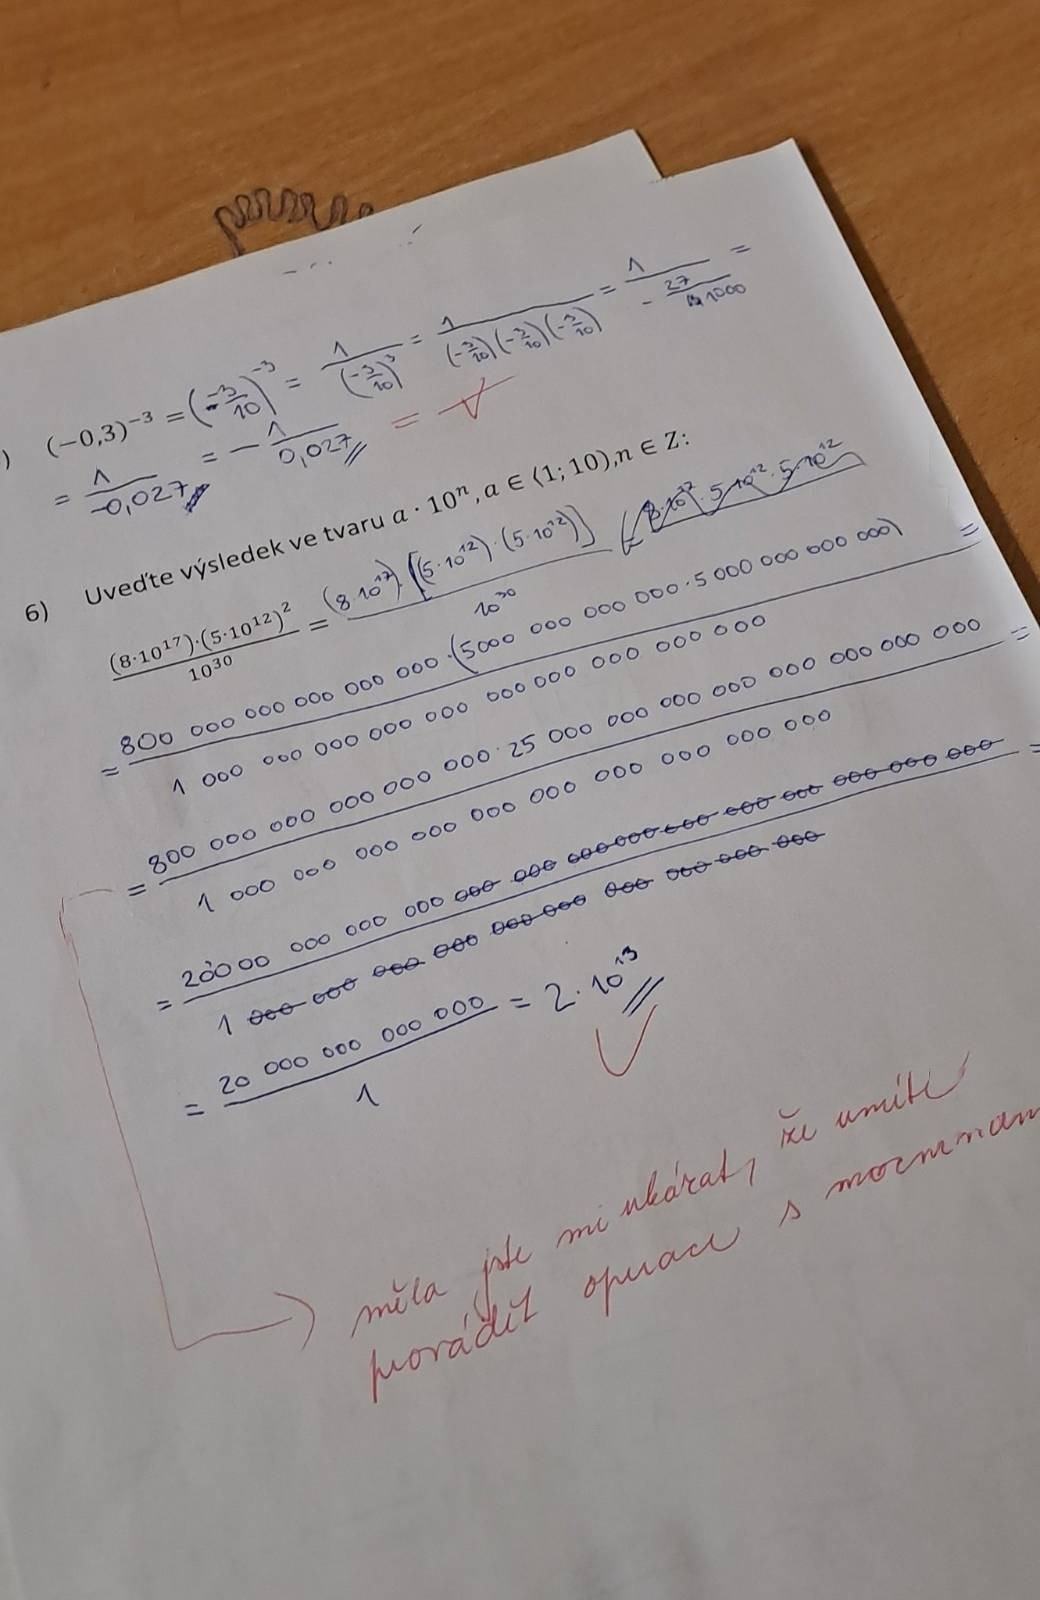 ) (−0,3)⁻³ = (-3/10)⁻³ = 1/(-3/10)³ = 1/((-3/10)(-3/10)(-3/10)) = 1/(-27/1000) =
= 1/-0,027 = - 1/0,027 = √
6) Uveďte výsledek ve tvaru a · 10ⁿ, a ∈ ⟨1; 10), n ∈ Z:
(8·10¹⁷)·(5·10¹²)²/10³⁰ = (8·10¹⁷)·[(5·10¹²)·(5·10¹²)]/10³⁰
= 800 000 000 000 000 000·(5000 000 000 000·5 000 000 000 000)/1 000 000 000 000 000 000 000 000 000 000 =
= 800 000 000 000 000 000·25 000 000 000 000 000 000 000 000/1 000 000 000 000 000 000 000 000 000 000 =
= 20000 000 000 000 000 000 000 000 000 000 000 000 000 000/1 000 000 000 000 000 000 000 000 000 000 =
= 20 000 000 000 000/1 = 2·10¹³
měla jste mi ukázat, že umíte
provádět operace s mocninam